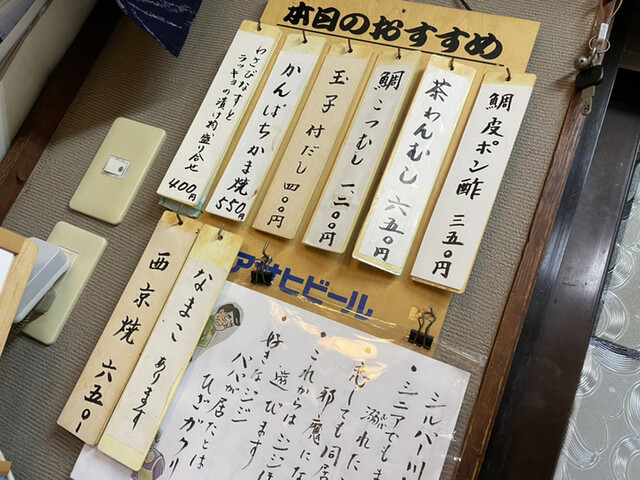 本日のおすすめ
鯛皮ポン酢 三五〇円
茶わんむし 六五〇円
鯛こつむし 一、二〇〇円
玉子付だし 四〇〇円
かんぱちかま焼 550円
わさびなすと
ラッキョの漬け物盛り合せ
400円
アサヒビール
なまこ あります
西京焼 六五〇-
シルバー川
・シニアでもま
溺れた
恋しても同居
邪魔にな
・これからは ジジ
遊びます
好きなジジ
ババが居たとは
ひざガクリ